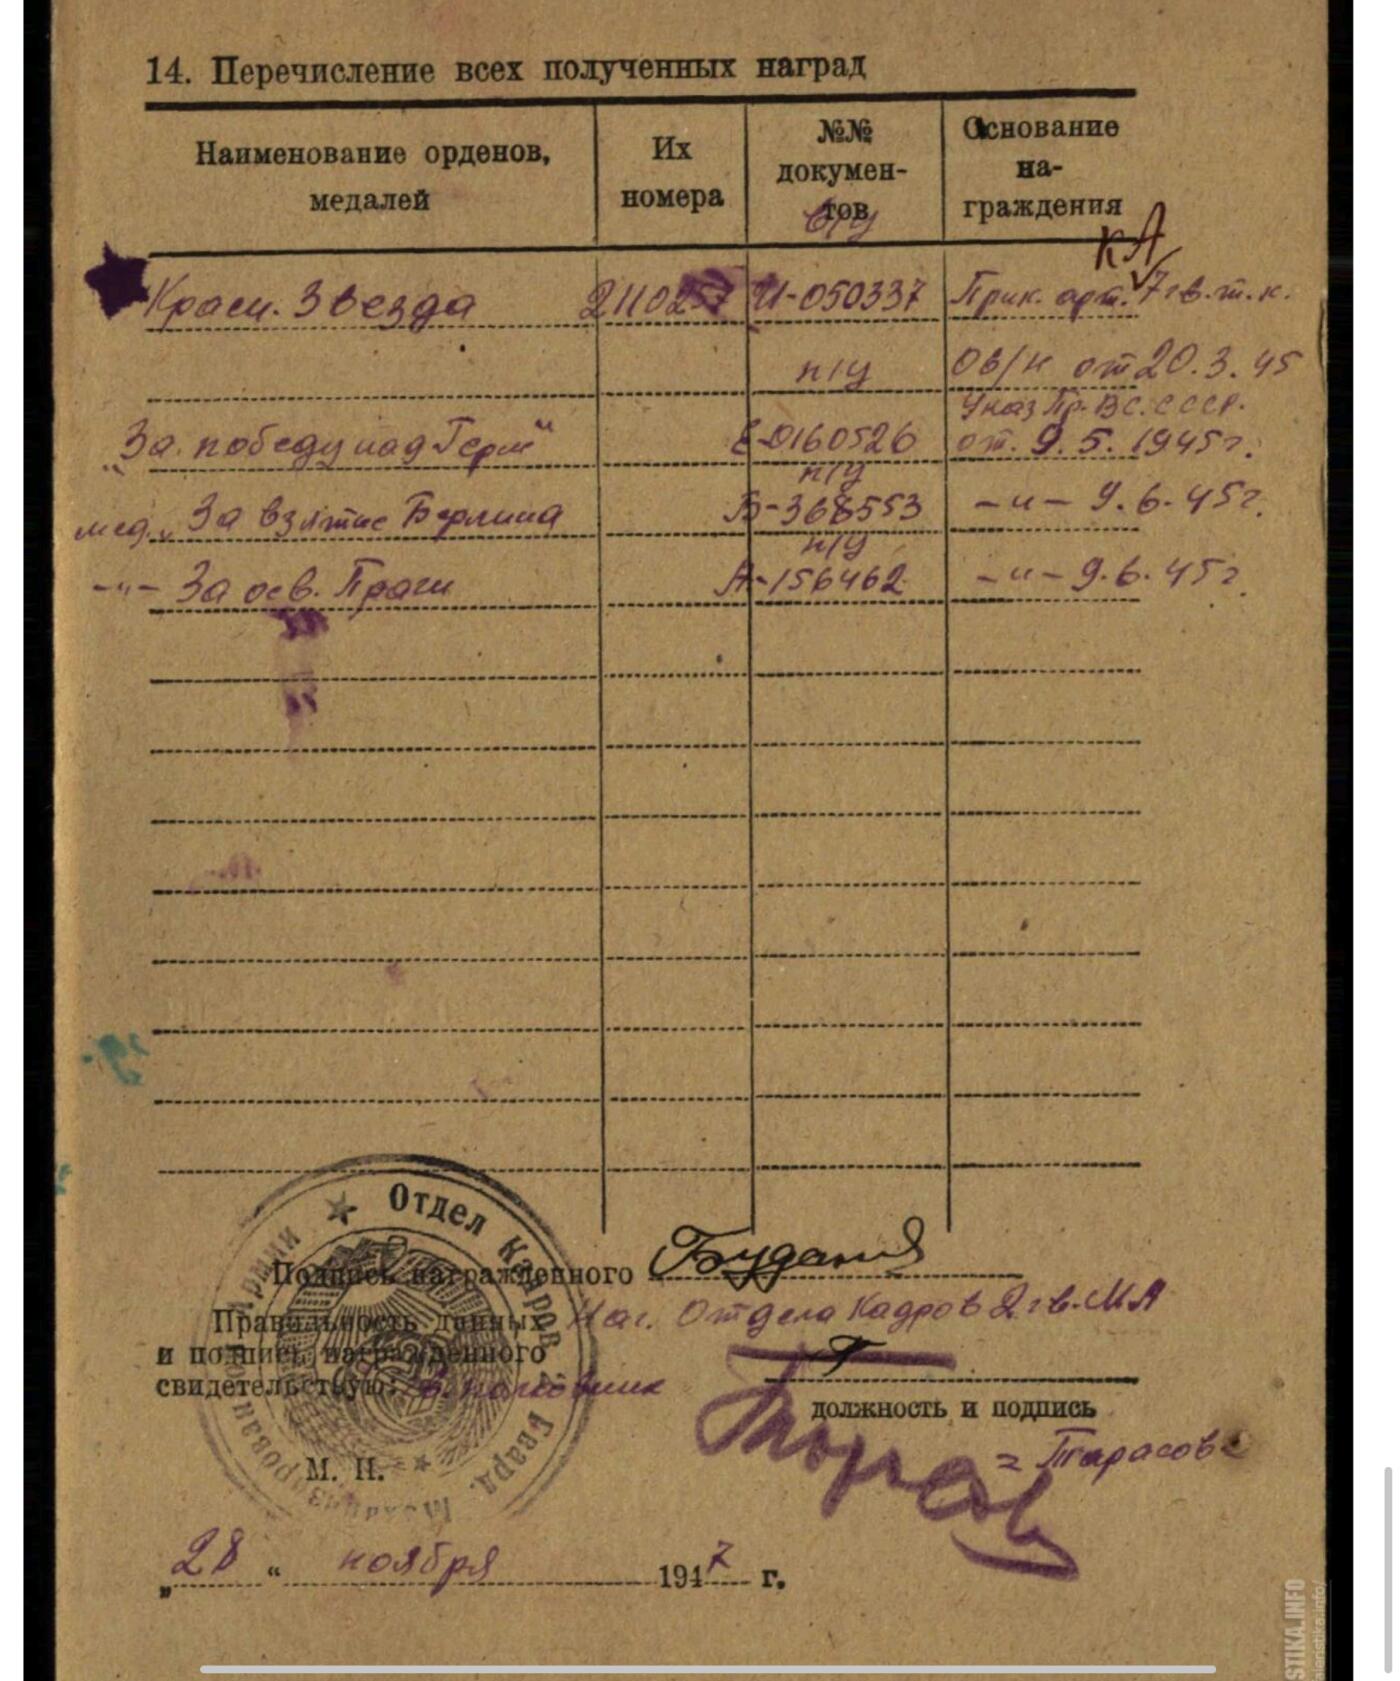 14. Перечисление всех полученных наград
Наименование орденов, медалей
Их номера
№№ докумен-тов
Основание на-граждения
б/у
КА
Красн. Звезда 2110257 И-050337 Прик. арт. 7 гв. т. к.
п/у Об/н от 20.3.45
Указ Пр. ВС. СССР.
"За победу над Герм" Е-0160526 от. 9.5.1945г.
п/у
мед. „За взятие Берлина Б-368553 -"- 9.6.45г.
п/у
-"- За осв. Праги А-156462 -"- 9.6.45г.
Отдел Кадров Гвард. Механизирован Армии
Подпись награжденного Буданов
Правильность данных Нач. Отдела Кадров 2 гв. МА
и подпись награжденного
свидетельствую: полковник
должность и подпись
Тарасов
= Тарасов =
М. П.
„28" ноября 1947 г.
STIKA.INFO